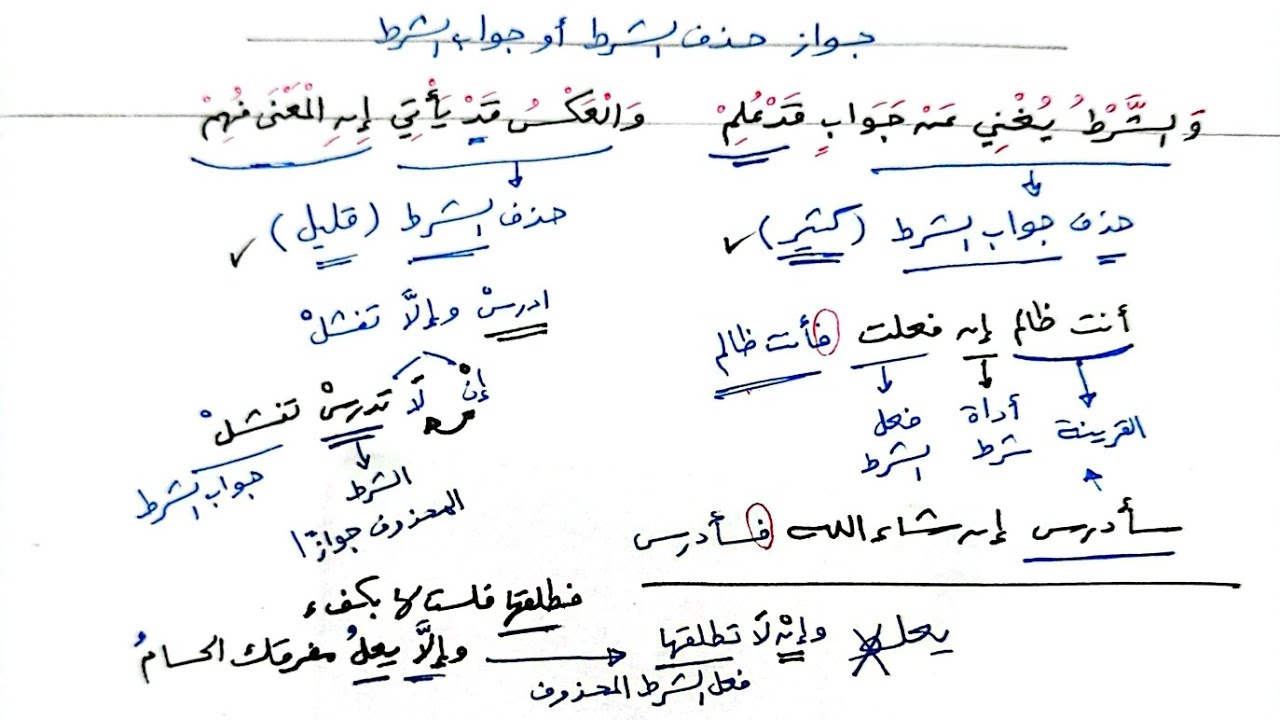 جواز حذف الشرط أو جواب الشرط
وَالشَّرْطُ يُغْنِي عَنْ جَوَابٍ قَدْ عُلِمْ وَالْعَكْسُ قَدْ يَأْتِي إِنِ الْمَعْنَى فُهِمْ
حذف جواب الشرط (كثير)
حذف الشرط (قليل)
أنت ظالم إن فعلت فأنت ظالم
القرينة
أداة شرط
فعل الشرط
سأدرس إن شاء الله فسأدرس
ادرسْ وإلَّا تفشلْ
إنْ لَا تدرسْ تفشلْ
الشرط
المحذوف جوازًا
جواب الشرط
فطلقها فلست لها بكفء
وإلَّا يعلُ مفرقك الحسامُ
وإنْ لَا تطلقها يعل
فعل الشرط المحذوف